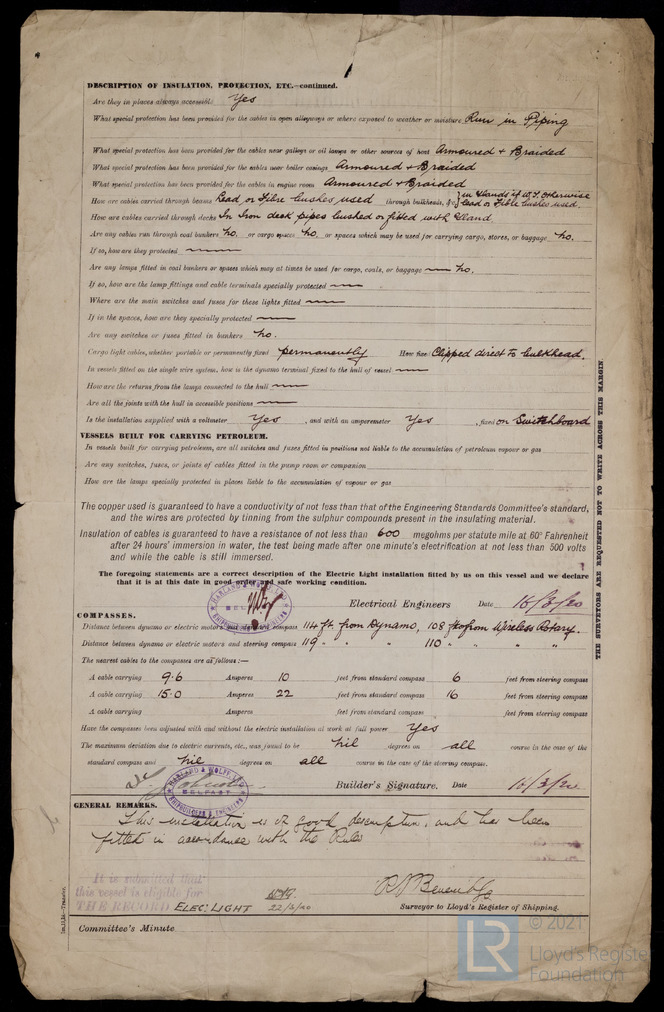 DESCRIPTION OF INSULATION, PROTECTION, ETC.—continued.
Are they in places always accessible Yes
What special protection has been provided for the cables in open alleyways or where exposed to weather or moisture Run in Piping
What special protection has been provided for the cables near galleys or oil lamps or other sources of heat Armoured & Braided
What special protection has been provided for the cables near boiler casings Armoured & Braided
What special protection has been provided for the cables in engine room Armoured & Braided
How are cables carried through beams Lead or Fibre bushes used through bulkheads, &c. in Glands if W.T. otherwise
Lead or Fibre bushes used.
How are cables carried through decks In Iron deck pipes bushed or fitted with Gland.
Are any cables run through coal bunkers no. or cargo spaces no. or spaces which may be used for carrying cargo, stores, or baggage no.
If so, how are they protected
Are any lamps fitted in coal bunkers or spaces which may at times be used for cargo, coals, or baggage no.
If so, how are the lamp fittings and cable terminals specially protected
Where are the main switches and fuses for these lights fitted
If in the spaces, how are they specially protected
Are any switches or fuses fitted in bunkers no.
Cargo light cables, whether portable or permanently fixed permanently How fixed Clipped direct to bulkhead.
In vessels fitted on the single wire system, how is the dynamo terminal fixed to the hull of vessel
How are the returns from the lamps connected to the hull
Are all the joints with the hull in accessible positions
Is the installation supplied with a voltmeter Yes , and with an amperemeter Yes , fixed on Switchboard
VESSELS BUILT FOR CARRYING PETROLEUM.
In vessels built for carrying petroleum, are all switches and fuses fitted in positions not liable to the accumulation of petroleum vapour or gas
Are any switches, fuses, or joints of cables fitted in the pump room or companion
How are the lamps specially protected in places liable to the accumulation of vapour or gas
The copper used is guaranteed to have a conductivity of not less than that of the Engineering Standards Committee's standard,
and the wires are protected by tinning from the sulphur compounds present in the insulating material.
Insulation of cables is guaranteed to have a resistance of not less than 600 megohms per statute mile at 60° Fahrenheit
after 24 hours' immersion in water, the test being made after one minute's electrification at not less than 500 volts
and while the cable is still immersed.
The foregoing statements are a correct description of the Electric Light installation fitted by us on this vessel and we declare
that it is at this date in good order and safe working condition.
HARLAND & WOLFF LTD
SHIPBUILDERS & ENGINEERS
Electrical Engineers Date 16/3/20
COMPASSES.
Distance between dynamo or electric motors and standard compass 114 ft. from Dynamo, 108 ft from Wireless Rotary.
Distance between dynamo or electric motors and steering compass 119 " " " 110 " " " "
The nearest cables to the compasses are as follows:—
A cable carrying 9.6 Amperes 10 feet from standard compass 6 feet from steering compass
A cable carrying 15.0 Amperes 22 feet from standard compass 16 feet from steering compass
A cable carrying Amperes feet from standard compass feet from steering compass
Have the compasses been adjusted with and without the electric installation at work at full power Yes
The maximum deviation due to electric currents, etc., was found to be nil degrees on all course in the case of the
standard compass and nil degrees on all course in the case of the steering compass.
HARLAND & WOLFF LTD
BELFAST
SHIPBUILDERS & ENGINEERS
Builder's Signature. Date 16/3/20
GENERAL REMARKS.
This installation is of good description, and has been
fitted in accordance with the Rules
It is submitted that
this vessel is eligible for
THE RECORD ELEC: LIGHT
22/3/20
Surveyor to Lloyd's Register of Shipping.
Committee's Minute
THE SURVEYORS ARE REQUESTED NOT TO WRITE ACROSS THIS MARGIN.
LR
© 2021
Lloyd's Register
Foundation